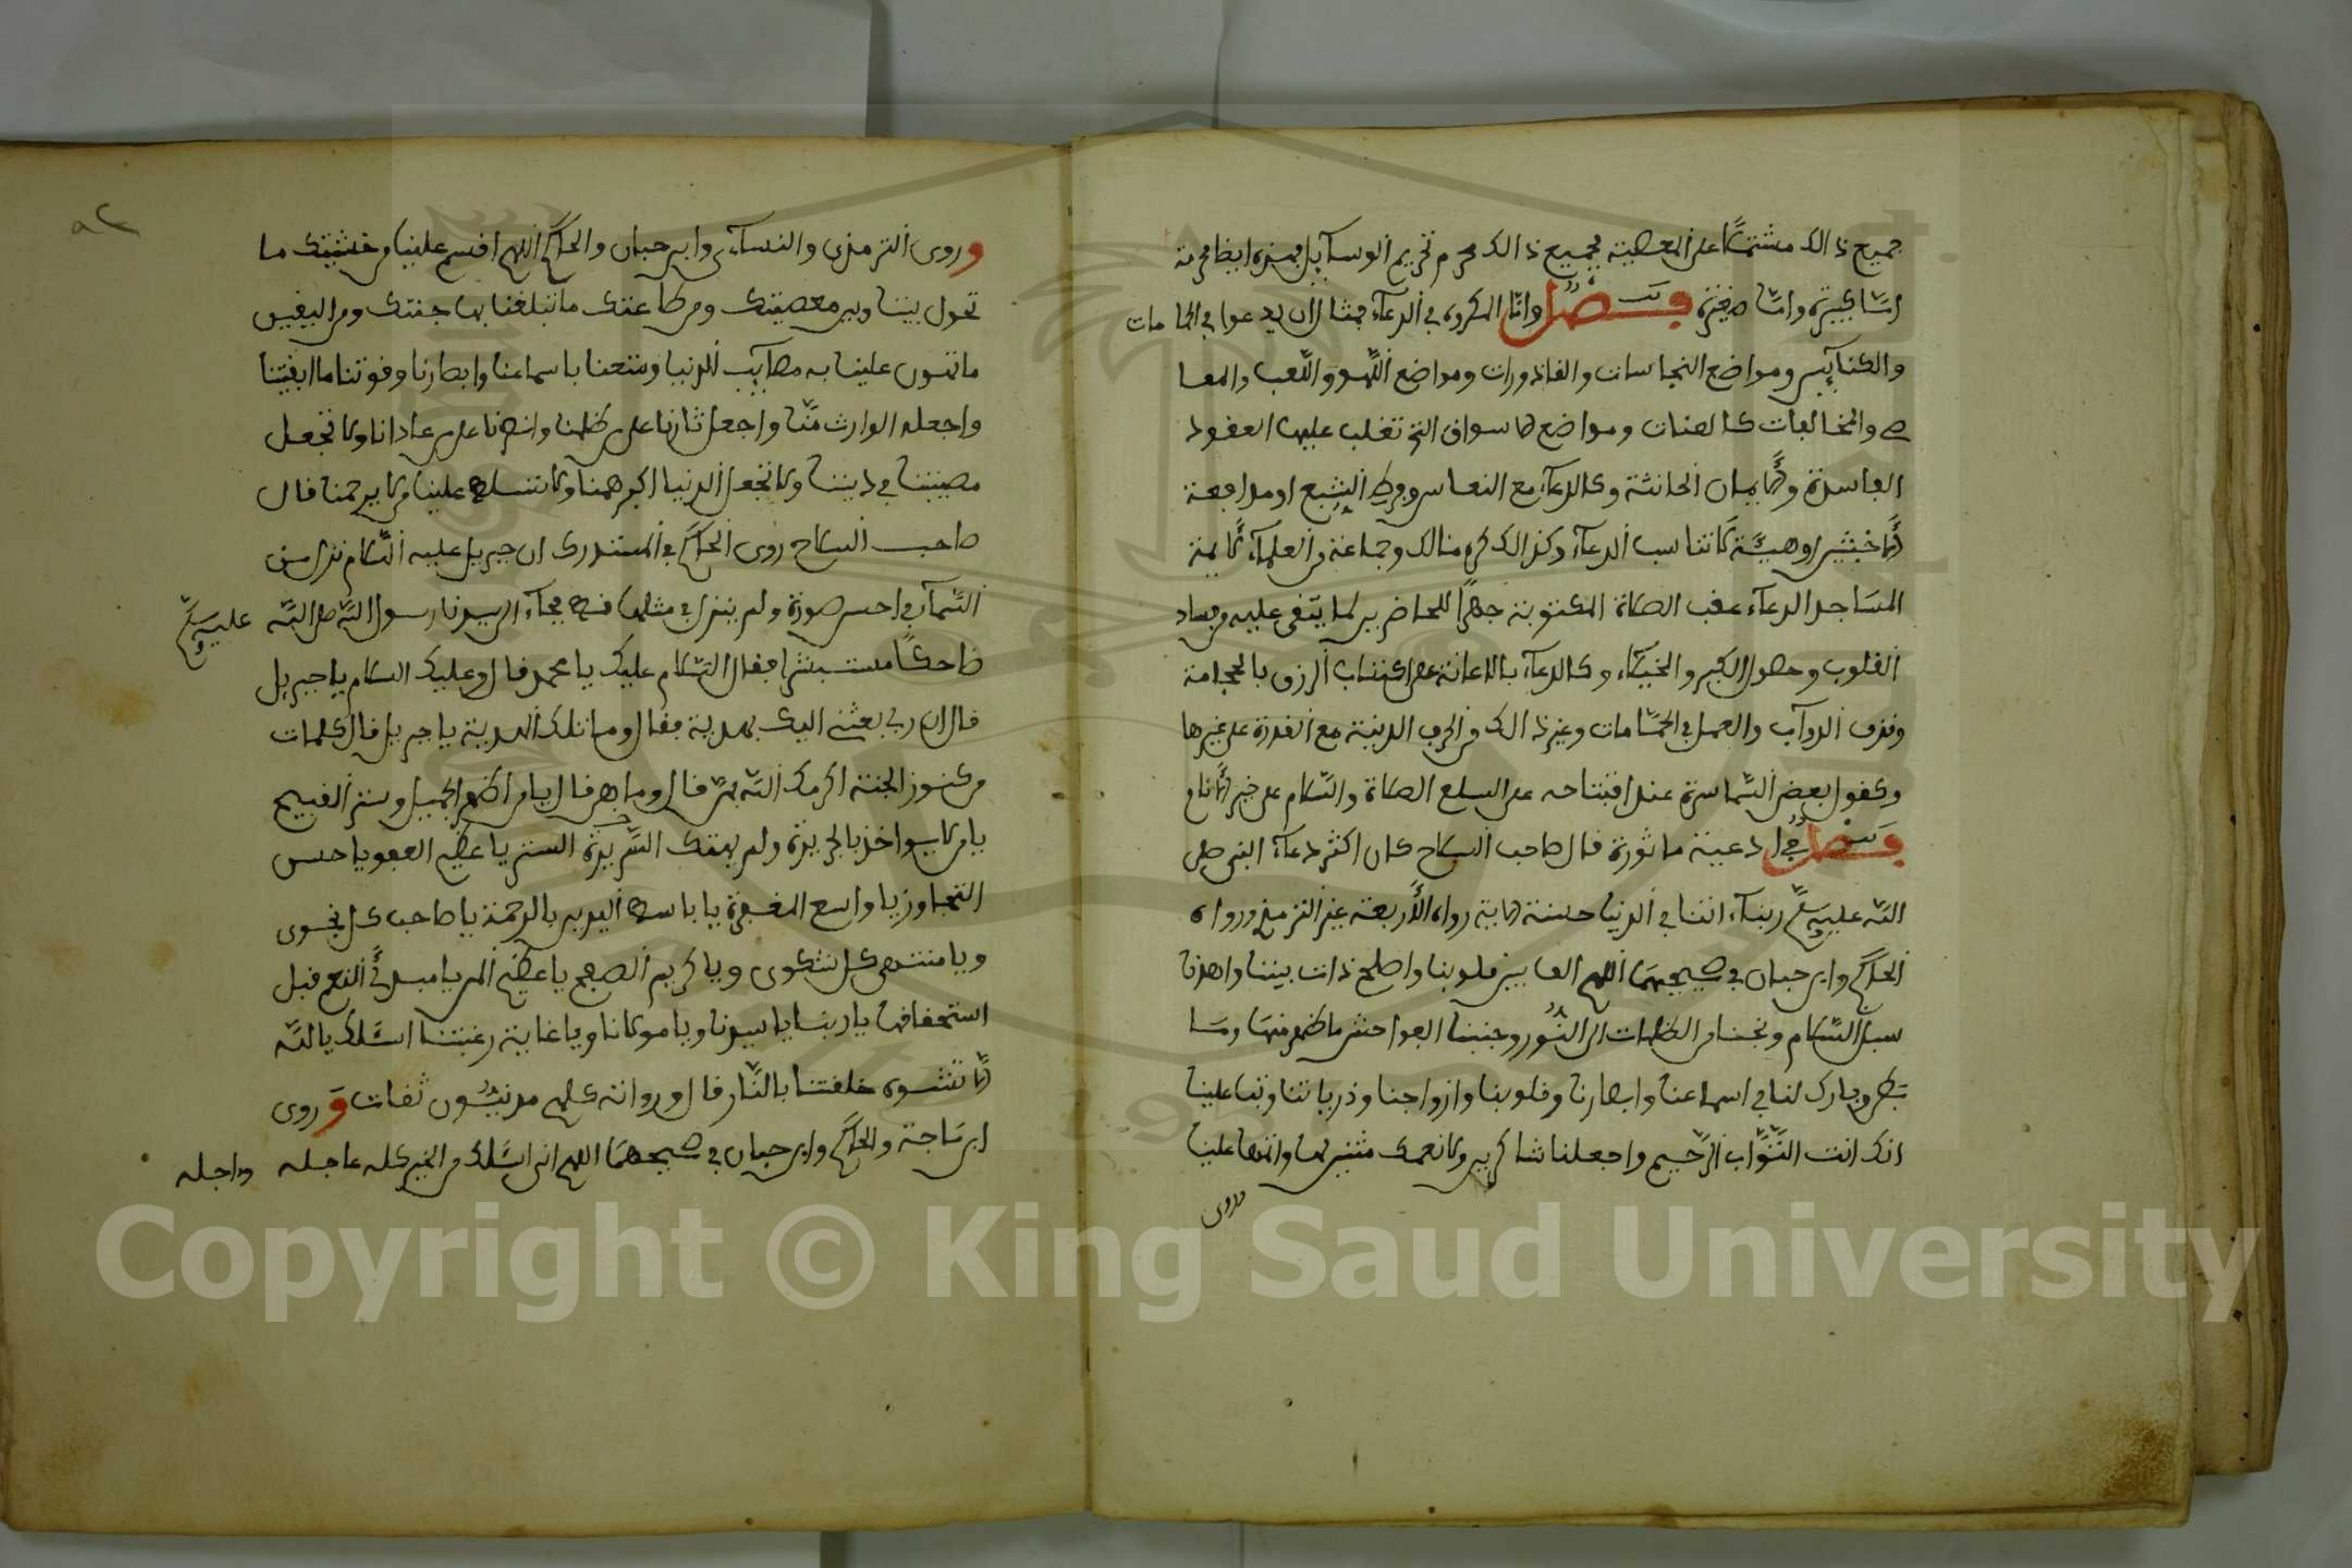 جميع ذالك مشتملا على المعصية فجميع ذالك محرم تحريم الوسآيل فهذه ايضا محرمة
امّا كبيرة وامّا صغيرة فصل وامّا المكروه في الدعآء فمثل ان يدعوا في الحمامات
والكنآيس ومواضع النجاسات والقاذورات ومواضع اللّهو واللّعب والمعا
صے والمخالفات كالحانات ومواضع الاسواق التي تغلب عليها العقود
الفاسدة والأيمان الحانثة وكالدعآء مع النعاس وفرط الشبع او مدافعة
الأخبثين او هيئة لا تناسب الدعآء وكذالك كره مالك وجماعة من العلمآء لأيمة
المساجد الدعآء عقب الصلاة المكتوبة جهرًا للحاضرين لما يتقى عليه من فساد
القلوب وحصول الكبر والخيلاء وكالدعآء بالاعانة على اكتساب الرزق بالحجامة
ونزف الدوآب والعمل في الحمّامات وغير ذالك من الحرف الدنية مع القدرة على غيرها
وكقول بعض السّماسرة عند افتتاحه على السلع الصلاة والسّلام على خير الأنام
فصل في ادعية ماثورة قال صاحب السلاح كان اكثر دعآء النبي صلى
اللّه عليه وسلّم ربنآء اتنا في الدنيا حسنة الاية رواه الأربعة غير الترمذي ورواه
الحاكم وابن حبان في صحيحهما اللهم الف بين قلوبنا واصلح ذات بيننا واهدنا
سبل السّلام ونجنا من الظلمات الى النّور وجنبنا الفواحش ما ظهر منها وما
بطن وبارك لنا في اسماعنا وابصارنا وقلوبنا وازواجنا وذرياتنا وتب علينا
انك انت التّوّاب الرّحيم واجعلنا شاكرين لانعمك مثنين بها واتمها علينا
وروى
وروى الترمذي والنسآءي وابن حبان والحاكم اللهم اقسم علينا من خشيتك ما
تحول بيننا وبين معصيتك ومن طاعتك ما تبلغنا بها جنتك ومن اليقين
ما تهون علينا به مصآيب الدنيا ومتعنا باسماعنا وابصارنا وقوتنا ما ابقيتنا
واجعله الوارث منّا واجعل ثارنا على من ظلمنا وانصرنا على من عادانا ولا تجعل
مصيبتنا في ديننا ولا تجعل الدنيا اكبر همنا ولا تسلط علينا من لا يرحمنا قال
صاحب السلاح روى الحاكم في المستدرك ان جبريل عليه السّلام نزل من
السّمآء في احسن صورة ولم ينزل في مثلها قط فجآء الى سيدنا رسول اللّه صلى اللّه عليه وسلّم
ضاحكًا مستبشرا فقال السّلام عليك يا محمد قال وعليك السلام يا جبريل
قال ان ربي بعثني اليك بهدية فقال وما تلك الهدية يا جبريل قال كلمات
من كنوز الجنة اكرمك اللّه بهنّ قال وما هن قال يا من اظهر الجميل وستر القبيح
يا من لا يواخذ بالجريرة ولم يهتك السّريرة الستر يا عظيم العفو يا حسن
التجاوز يا واسع المغفرة يا باسط اليدين بالرحمة يا صاحب كل نجوى
ويا منتهى كل شكوى ويا كريم الصفح يا عظيم المن يا مبدئ النعم قبل
استحقاقها يا ربنا يا سيدنا ويا مولانا ويا غاية رغبتنا اسّلك يا اللّه
الّا تشوه خلقتنا بالنّار قال ورواته كلهم مدنيّون ثقات وروى
ابن ماجة والحاكم وابن حبان في صحيحهما اللهم اني اسّلك من الخير كله عاجله واجله